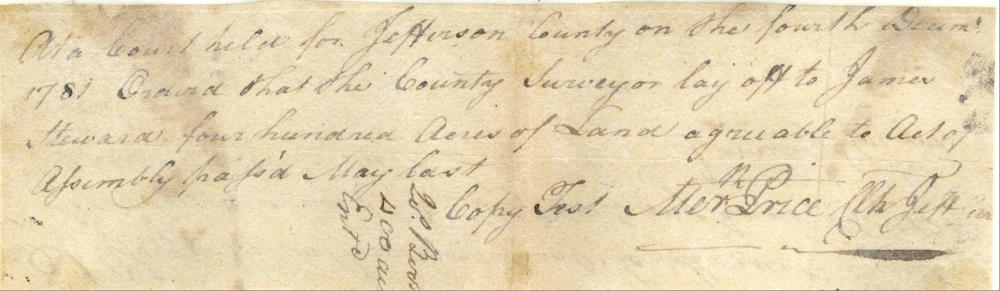 At a Court held for Jefferson County on the fourth Decemr
1781 Orderd that the County Surveyor lay off to James
Steward four hundred Acres of Land agreeable to Act of
Assembly pass'd May last
Copy Test Merh Price Clk Jeff
400 ac
Entd